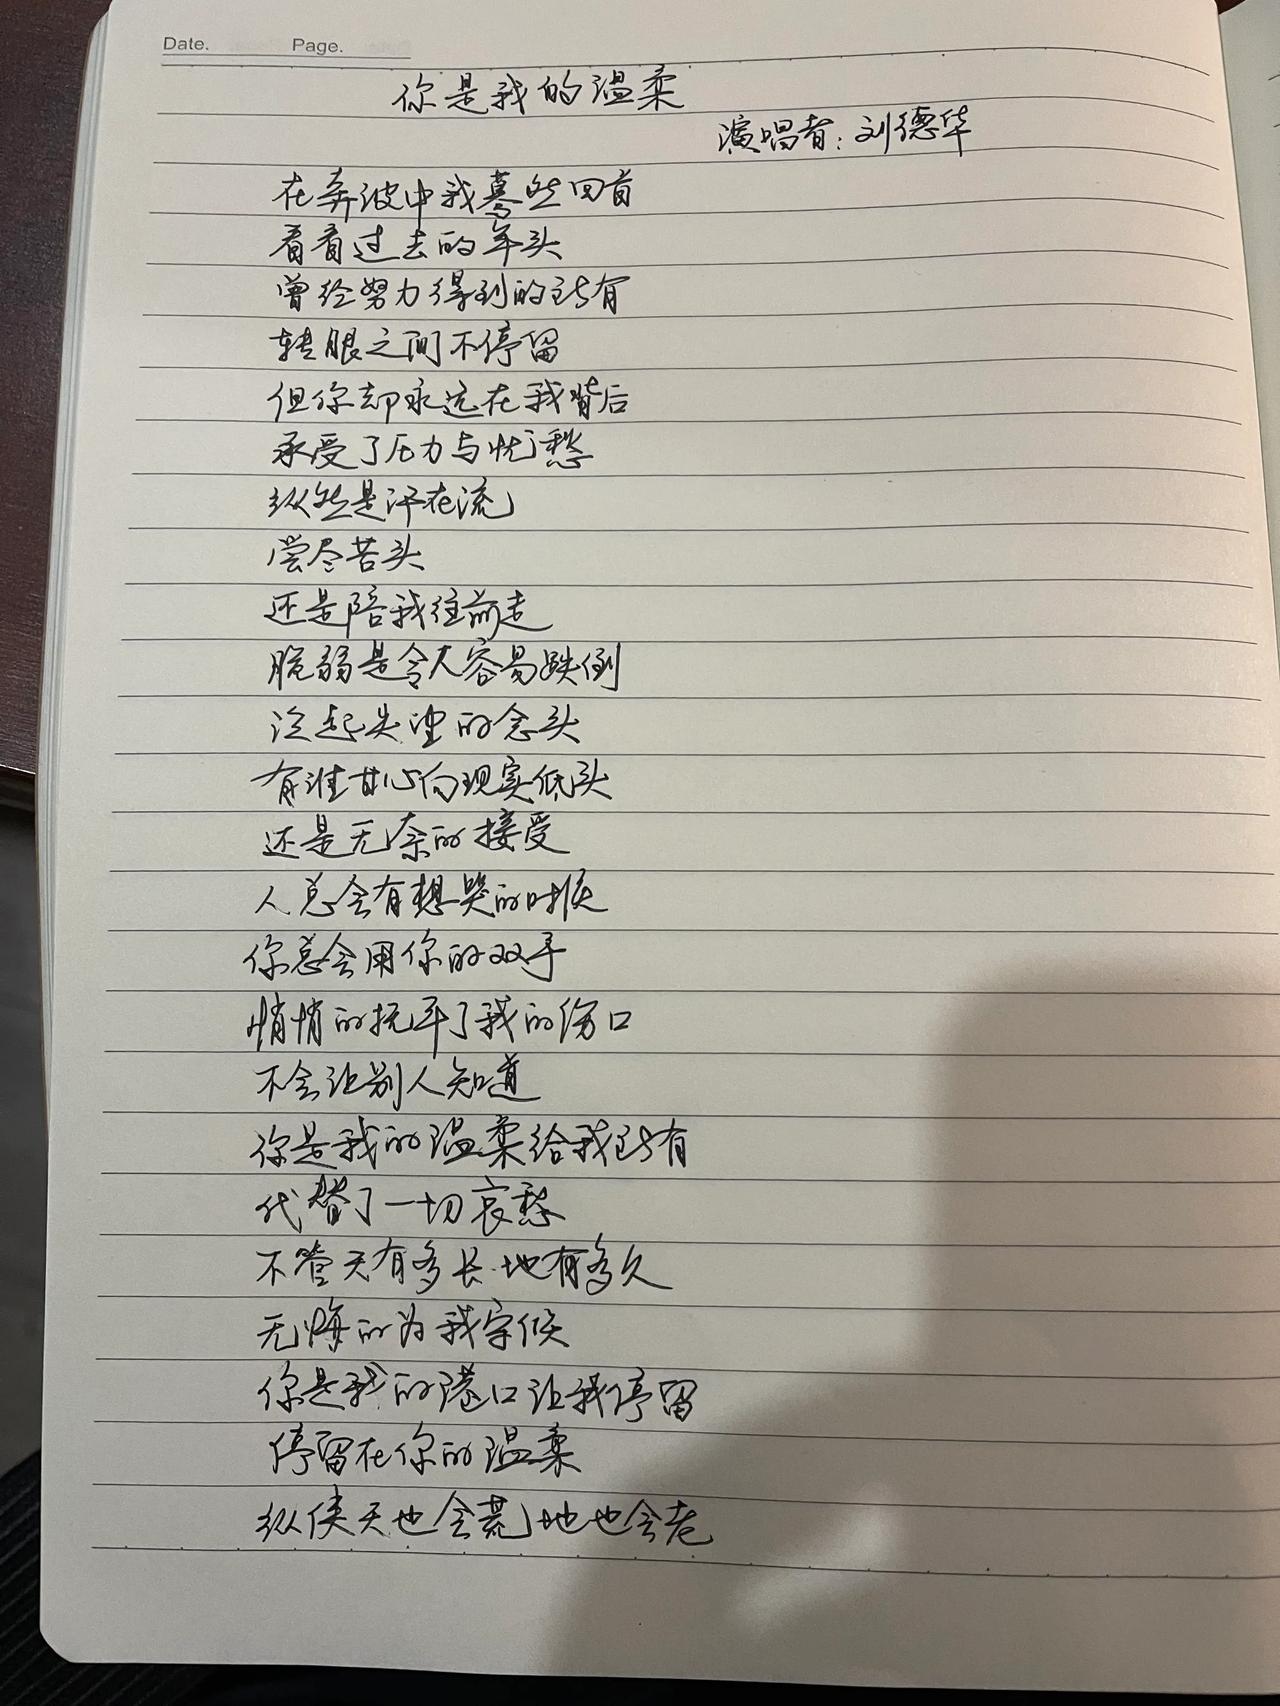 Date. Page.
你是我的温柔
演唱者：刘德华
在奔波中我蓦然回首
看看过去的年头
曾经努力得到的所有
转眼之间不停留
但你却永远在我背后
承受了压力与忧愁
纵然是汗在流
尝尽苦头
还是陪我往前走
脆弱是令人容易跌倒
泛起失望的念头
有谁甘心向现实低头
还是无奈的接受
人总会有想哭的时候
你总会用你的双手
悄悄的抚平了我的伤口
不会让别人知道
你是我的温柔给我所有
代替了一切哀愁
不管天有多长地有多久
无悔的为我守候
你是我的港口让我停留
停留在你的温柔
纵使天也会荒地也会老